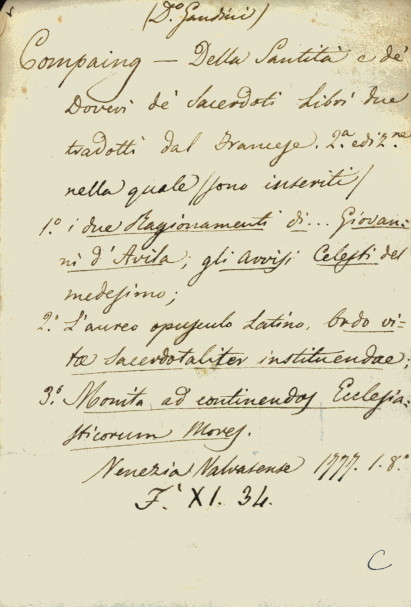 (D.º Gaudini)
Compaing — Della Santità e de'
Doveri de' Sacerdoti Libri due
tradotti dal Francese. 2.ª ediz.ne
nella quale sono inseriti
1.º i due Ragionamenti di... Giovan-
ni d'Avila; gli Avvisi Celesti del
medesimo;
2.º L'aureo opuscolo Latino, Ordo vi-
tæ Sacerdotaliter instituendae;
3.º Monita ad continendos Ecclesia-
sticorum Mores.
Venezia Valvasense 1777. 1. 8.º
F.' XI. 34.
C